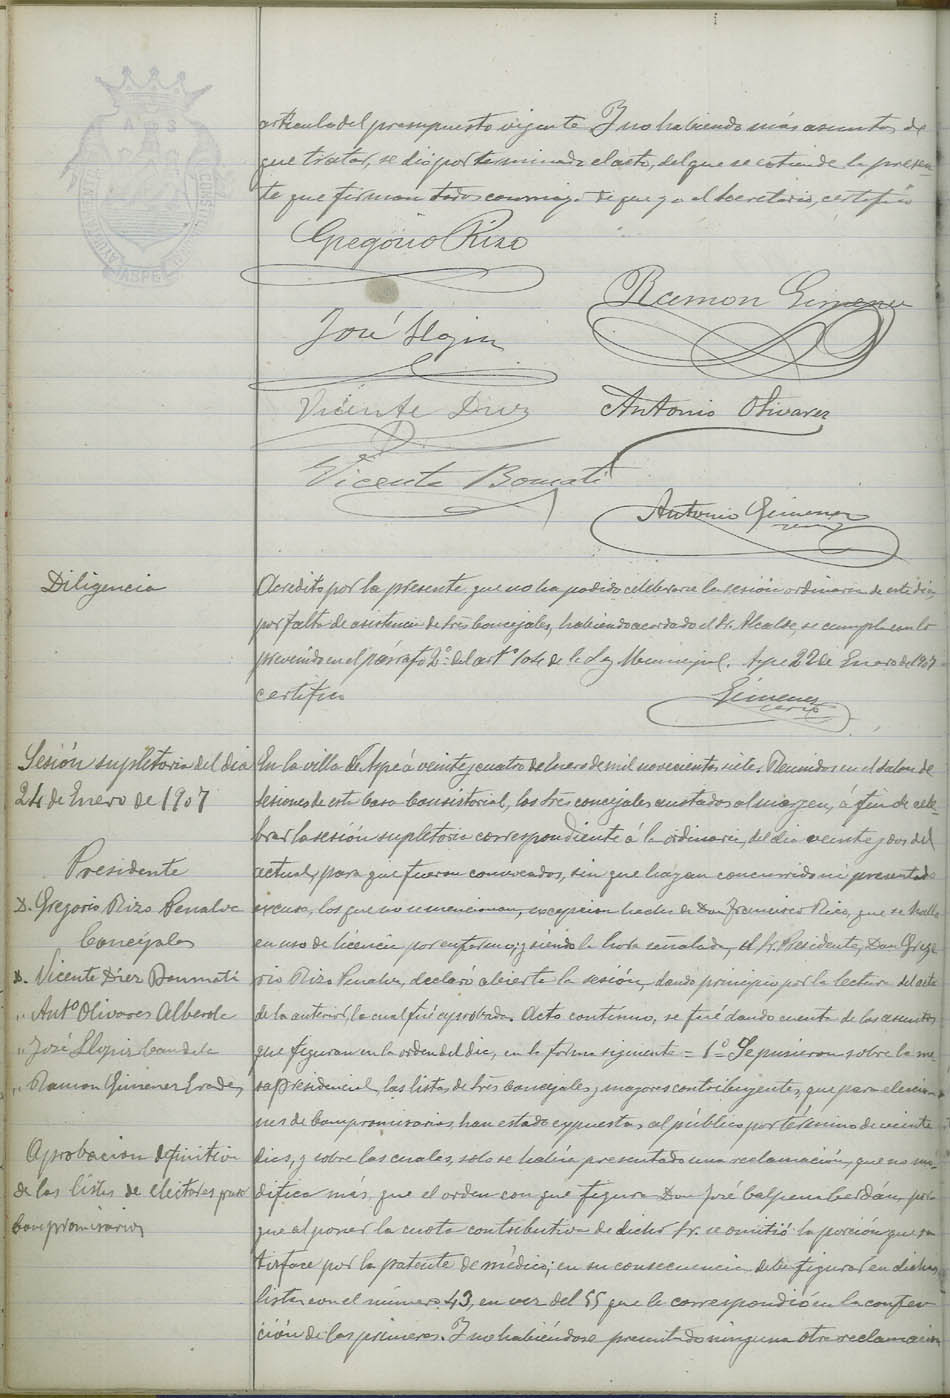 artículo del presupuesto vigente Y no habiendo más asuntos de
que tratar, se dió por terminado el acto, del que se extiende la presen-
te que firman todos conmigo. De que yo el Secretario, certifico
Gregorio Rizo
Ramon Gimenez
José Llopiz
Vicente Diez
Antonio Olivares
Vicente Bomati
Antonio Gimenez
Diligencia
Acredito por la presente que no ha podido celebrarse la sesión ordinaria de este dia,
por falta de asistencia de Sres Concejales, habiendo acordado el Sr. Alcalde, se cumpla con lo
prevenido en el párrafo 2º del artº 104 de la Ley Municipal. Aspe 22 de Enero de 1907
certifico
Gimenez
serio
Sesión supletoria del dia
24 de Enero de 1907
Presidente
D. Gregorio Rizo Penalva
Concejales
D. Vicente Diez Bonmatí
" Antº Olivares Alberola
" José Llopiz Candela
" Ramon Gimenez Erades
Aprobacion definitiva
de las listas de electores para
Compromisarios
En la villa de Aspe á veinte y cuatro de Enero de mil novecientos siete. Reunidos en el Salon de
Sesiones de esta Casa Consistorial, los Sres concejales anotados al margen, á fin de cele-
brar la sesión supletoria correspondiente á la ordinaria, del dia veinte y dos del
actual, para que fueron convocados, sin que hayan concurrido ni presentado
excusa, los que no se mencionan, excepcion hecha de Don Francisco Rico, que se halla
en uso de licencia por enfermo; y siendo la hora señalada, el Sr. Presidente, Don Grego-
rio Rizo Penalva, declaró abierta la sesión, dando principio por la lectura del acta
de la anterior, la cual fué aprobada. Acto contínuo, se fué dando cuenta de los asuntos
que figuran en la orden del dia, en la forma siguiente = 1º Se pusieron sobre la me-
sa Presidencial, las listas de Sres Concejales y mayores contribuyentes, que para eleccio-
nes de Compromisarios, han estado expuestas al público por término de veinte
dias, y sobre las cuales, solo se habia presentado una reclamación, que no mo-
difica más que el orden con que figura Don José Calpena Cerdán, por
que al poner la cuota contributiva de dicho Sr. se omitió la porción que sa-
tisface por la patente de médico; en su consecuencia debe figurar en dichas
listas con el número 43, en vez del 55 que le correspondió en la confec-
ción de las primeras. Y no habiéndose presentado ninguna otra reclamación